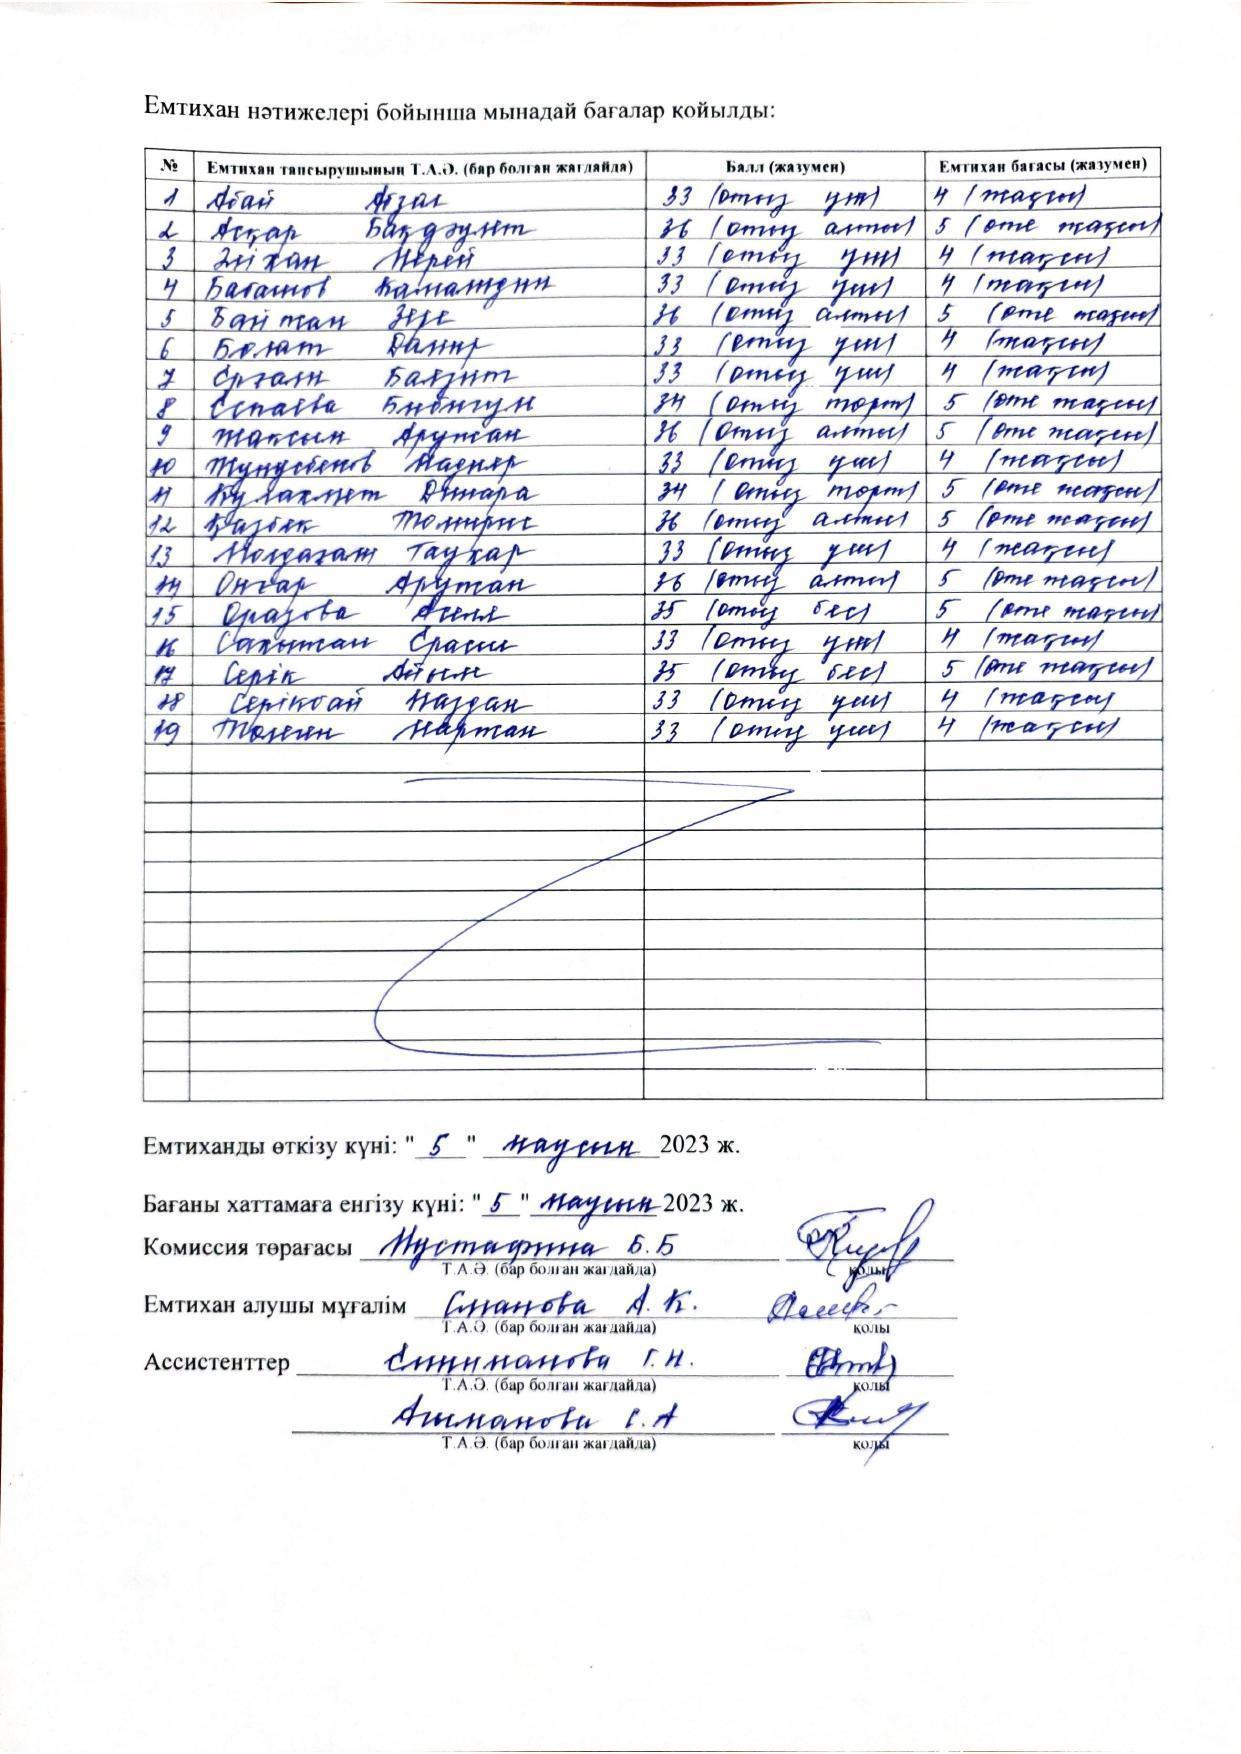 Емтихан нәтижелері бойынша мынадай бағалар қойылды:
№ Емтихан тапсырушының Т.А.Ә. (бар болған жағдайда) Балл (жазумен) Емтихан бағасы (жазумен)
1 Абай Абзал 33 (отыз үш) 4 (жақсы)
2 Асқар Бақдәулет 36 (отыз алты) 5 (өте жақсы)
3 Әйкан Нерей 33 (отыз үш) 4 (жақсы)
4 Багашов 33 (отыз үш) 4 (жақсы)
5 Байжан Зере 36 (отыз алты) 5 (өте жақсы)
6 Болат Данир 33 (отыз үш) 4 (жақсы)
7 Ерғали Баязит 33 (отыз үш) 4 (жақсы)
8 Еспаева Бибігүл 34 (отыз төрт) 5 (өте жақсы)
9 Жақсын Аружан 36 (отыз алты) 5 (өте жақсы)
10 Жүнүсбеков Мадияр 33 (отыз үш) 4 (жақсы)
11 Құлахмет Динара 34 (отыз төрт) 5 (өте жақсы)
12 Қазбек Томирис 36 (отыз алты) 5 (өте жақсы)
13 Молдағаат Таухар 33 (отыз үш) 4 (жақсы)
14 Оңғар Аружан 36 (отыз алты) 5 (өте жақсы)
15 Оразова Аселя 35 (отыз бес) 5 (өте жақсы)
16 Сахыжан Ерасыл 33 (отыз үш) 4 (жақсы)
17 Серік Айым 35 (отыз бес) 5 (өте жақсы)
18 Серікбай Наздан 33 (отыз үш) 4 (жақсы)
19 Төлеген Нартай 33 (отыз үш) 4 (жақсы)
Емтиханды өткізу күні: " 5 " маусым 2023 ж.
Бағаны хаттамаға енгізу күні: " 5 " маусым 2023 ж.
Комиссия төрағасы Мустафина Б.Б
Т.А.Ә. (бар болған жағдайда) қолы
Емтихан алушы мұғалім Сманова А.К.
Т.А.Ә. (бар болған жағдайда) қолы
Ассистенттер Г.Н.
Т.А.Ә. (бар болған жағдайда) қолы
Ашманова С.А
Т.А.Ә. (бар болған жағдайда) қолы